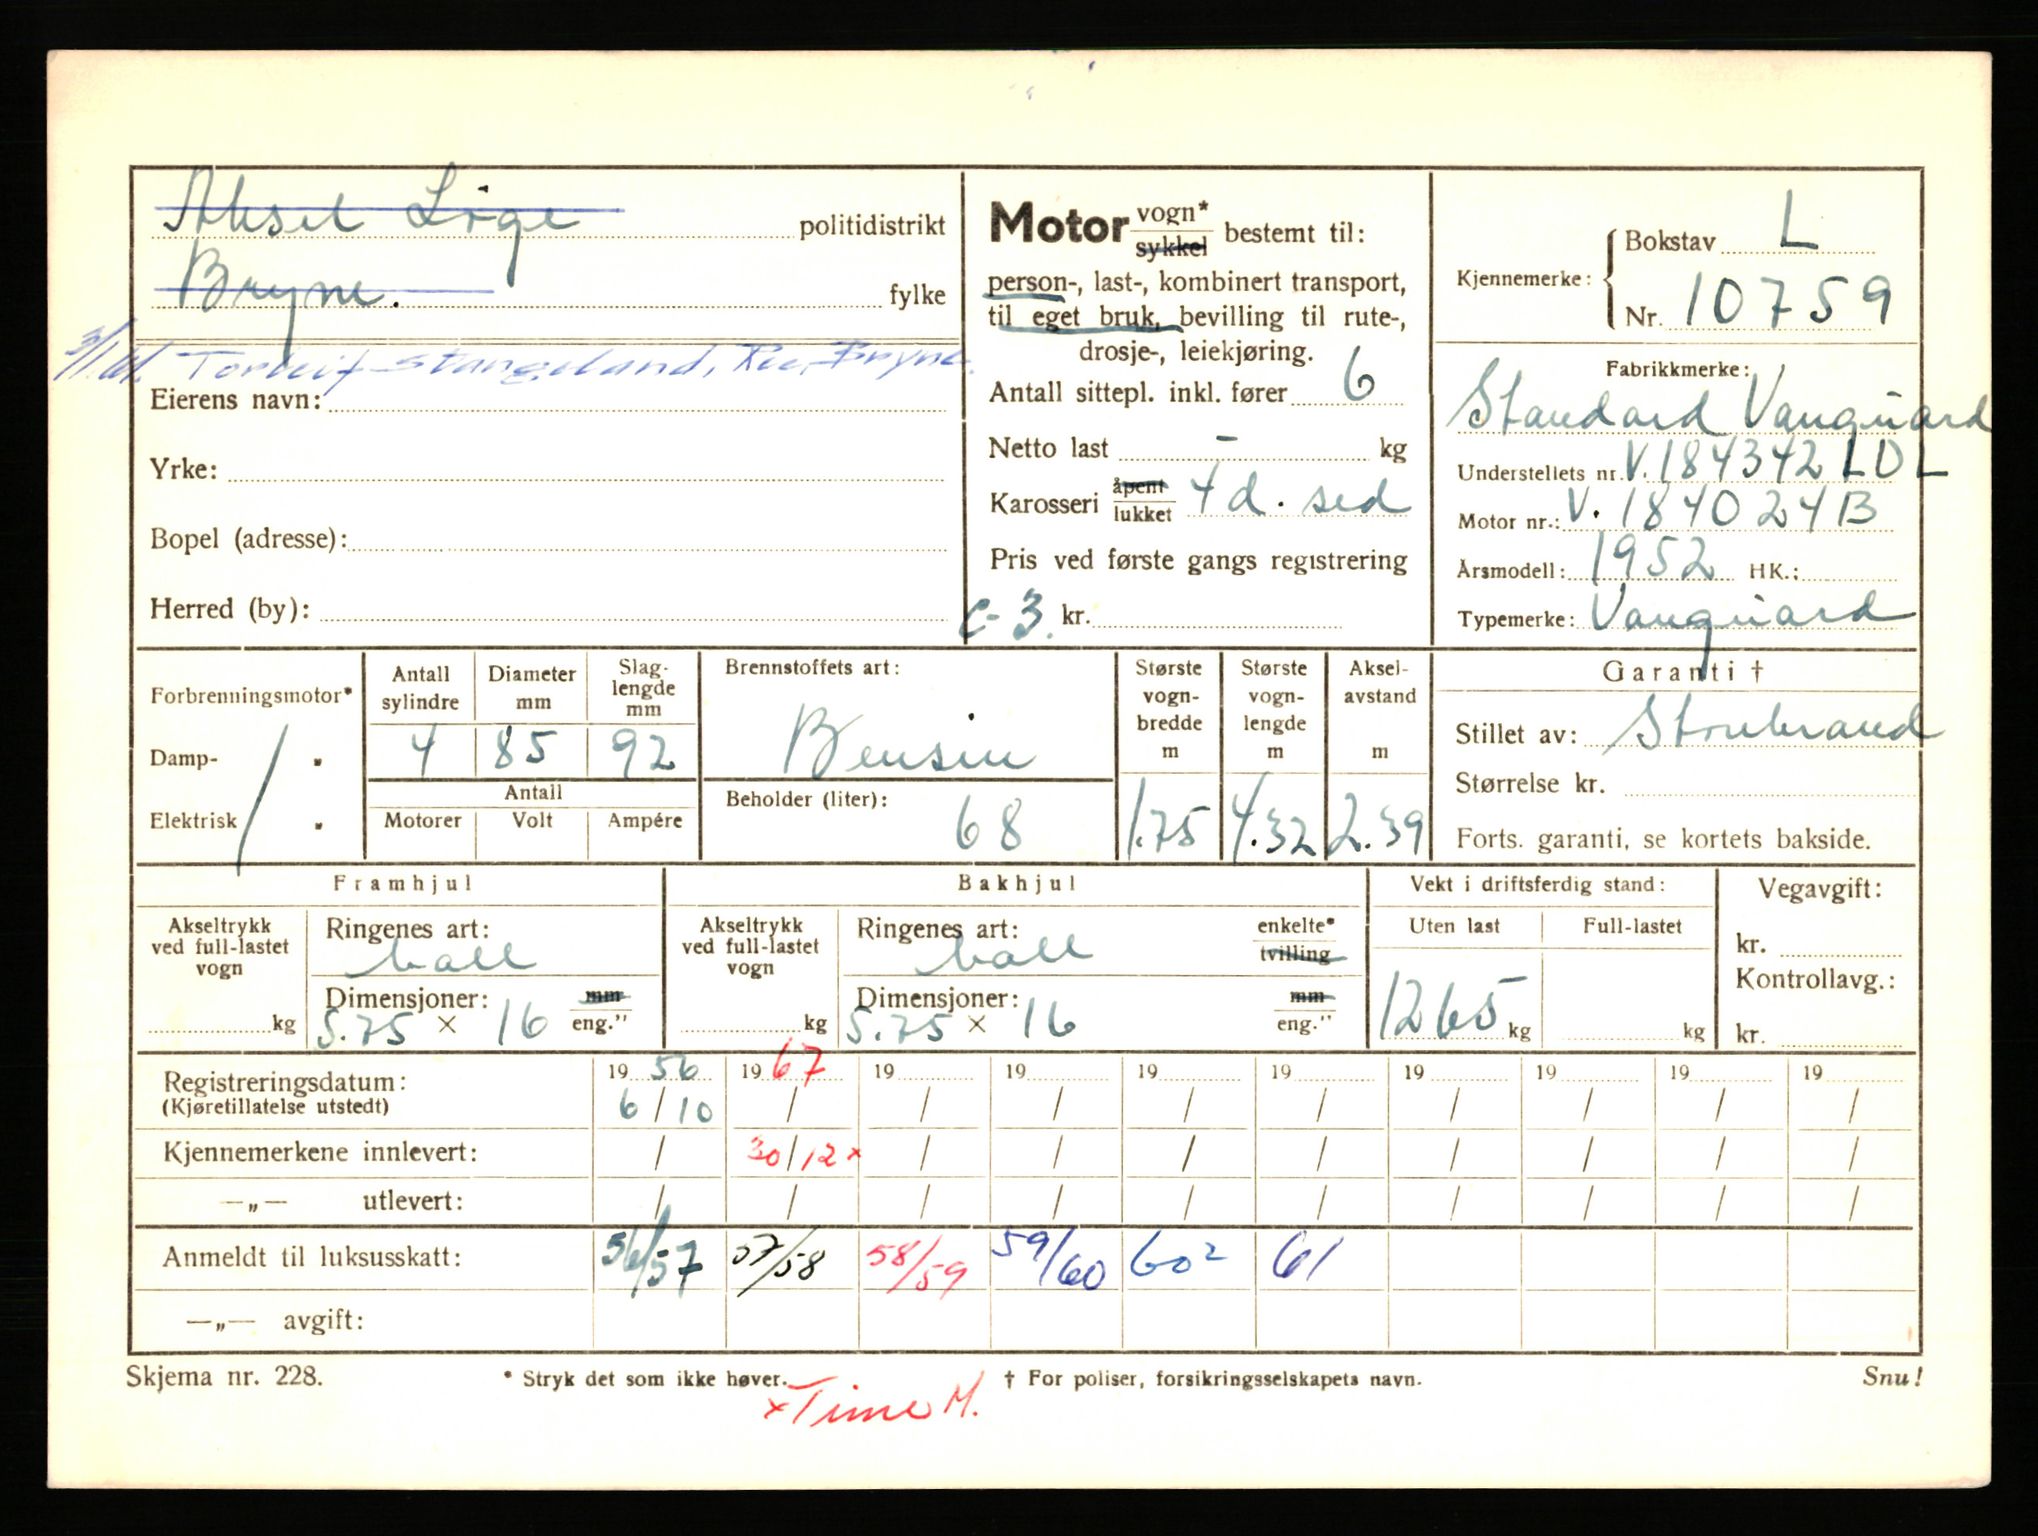 Aksel Lige politidistrikt
Bryne. fylke
3/1.61. Torleif Stangeland, Ree, Bryne.
Eierens navn:
Yrke:
Bopel (adresse):
Herred (by):
Motor vogn* sykkel bestemt til:
person-, last-, kombinert transport,
til eget bruk, bevilling til rute-,
drosje-, leiekjøring.
Antall sittepl. inkl. fører 6
Netto last - kg
Karosseri åpent lukket 4 d. sed
Pris ved første gangs registrering
C-3. kr.
Kjennemerke: Bokstav L
Nr. 10759
Fabrikkmerke:
Standard Vanguard
Understellets nr. V.184342 LDL
Motor nr.: V. 184024B
Årsmodell: 1952 HK.:
Typemerke: Vanguard
Forbrenningsmotor*
Damp- "
Elektrisk "
Antall sylindre 4
Diameter mm 85
Slaglengde mm 92
Antall
Motorer Volt Ampére
Brennstoffets art:
Bensin
Beholder (liter):
68
Største vognbredde m 1.75
Største vognlengde m 4.32
Akselavstand m 2.39
Garanti †
Stillet av: Storebrand
Størrelse kr.
Forts. garanti, se kortets bakside.
Framhjul
Akseltrykk ved full-lastet vogn kg
Ringenes art:
ball
Dimensjoner: mm
5.75 × 16 eng."
Bakhjul
Akseltrykk ved full-lastet vogn kg
Ringenes art: enkelte*
ball tvilling
Dimensjoner: mm
5.75 × 16 eng."
Vekt i driftsferdig stand:
Uten last Full-lastet
1265 kg kg
Vegavgift:
kr.
Kontrollavg.:
kr.
Registreringsdatum: 19 56 19 67 19 19 19 19 19 19 19 19
(Kjøretillatelse utstedt) 6/10 / / / / / / / / /
Kjennemerkene innlevert: / 30/12 × / / / / / / / /
—„— utlevert: / / / / / / / / / /
Anmeldt til luksusskatt: 56/57 57/58 58/59 59/60 60² 61
—„— avgift:
Skjema nr. 228. * Stryk det som ikke høver. † For poliser, forsikringsselskapets navn. Snu!
× Time M.